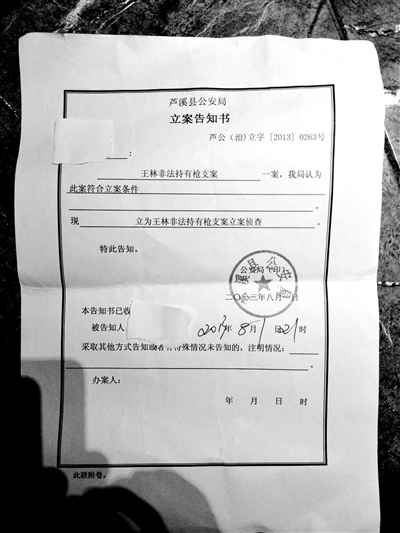 芦溪县公安局
立案告知书
芦公（治）立字 [2013] 0263号
：
王林非法持有枪支案 一案，我局认为
此案符合立案条件
，
现 立为王林非法持有枪支案立案侦查 。
特此告知。
公安局（印）
芦溪县公安局
二〇一三年八月 日
本告知书已收
被告知人 2013年8月 日21时
采取其他方式告知或者有特殊情况未告知的，注明情况：
。
办案人：
年 月 日 时
此联附卷。